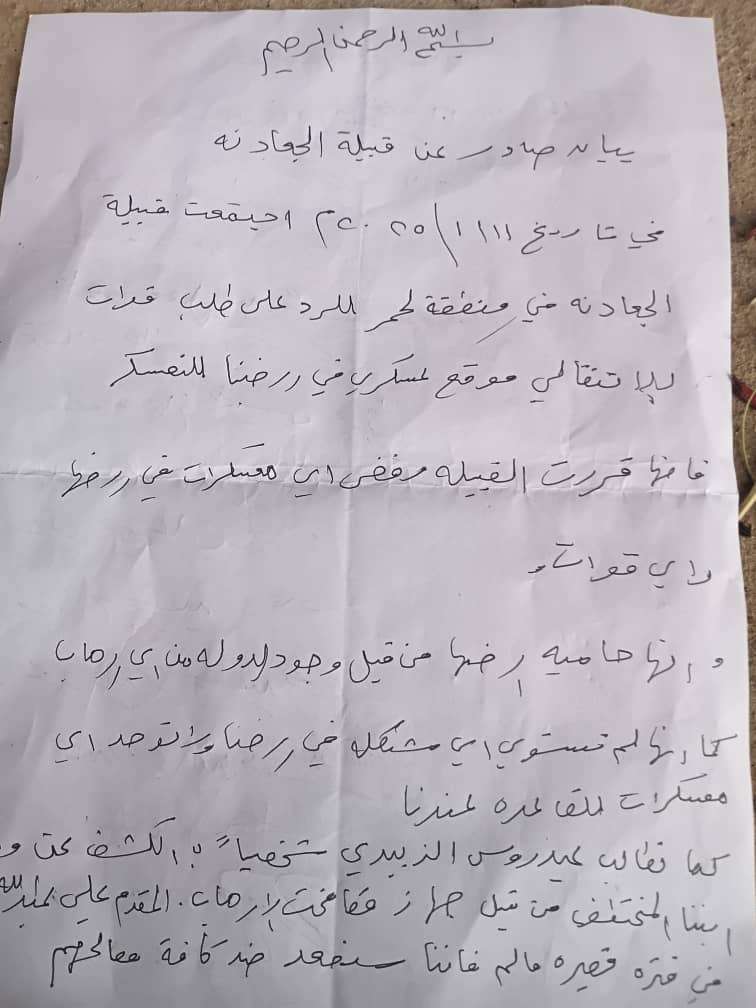 بسم الله الرحمن الرحيم
بيان صادر عن قبيلة الجعادنه
في تاريخ ١١/١/٢٠٢٥م اجتمعت قبيلة
الجعادنه في منطقة لحمر للرد على طلب قوات
للانتقالي موقع عسكري في ررضنا للتعسكر
فانها قررت القبيله رفض اي معسكرات في ررضها
واي قوات
و إنها حاميه ارضها من قبل وجود الدوله من اي إرهاب
كما إنها لم تستوي اي مشكله في ررضنا ولا توجد اي
معسكرات للقاعده عندنا
كما نطالب عيدروس الزبيدي شخصياً بالكشف عن و
ابننا المختطف من قبل جهاز مكافحت الإرهاب. المقدم علي عبدالله
في فتره قصيره مالم فاننا سنصعد ضد كافة مصالحهم